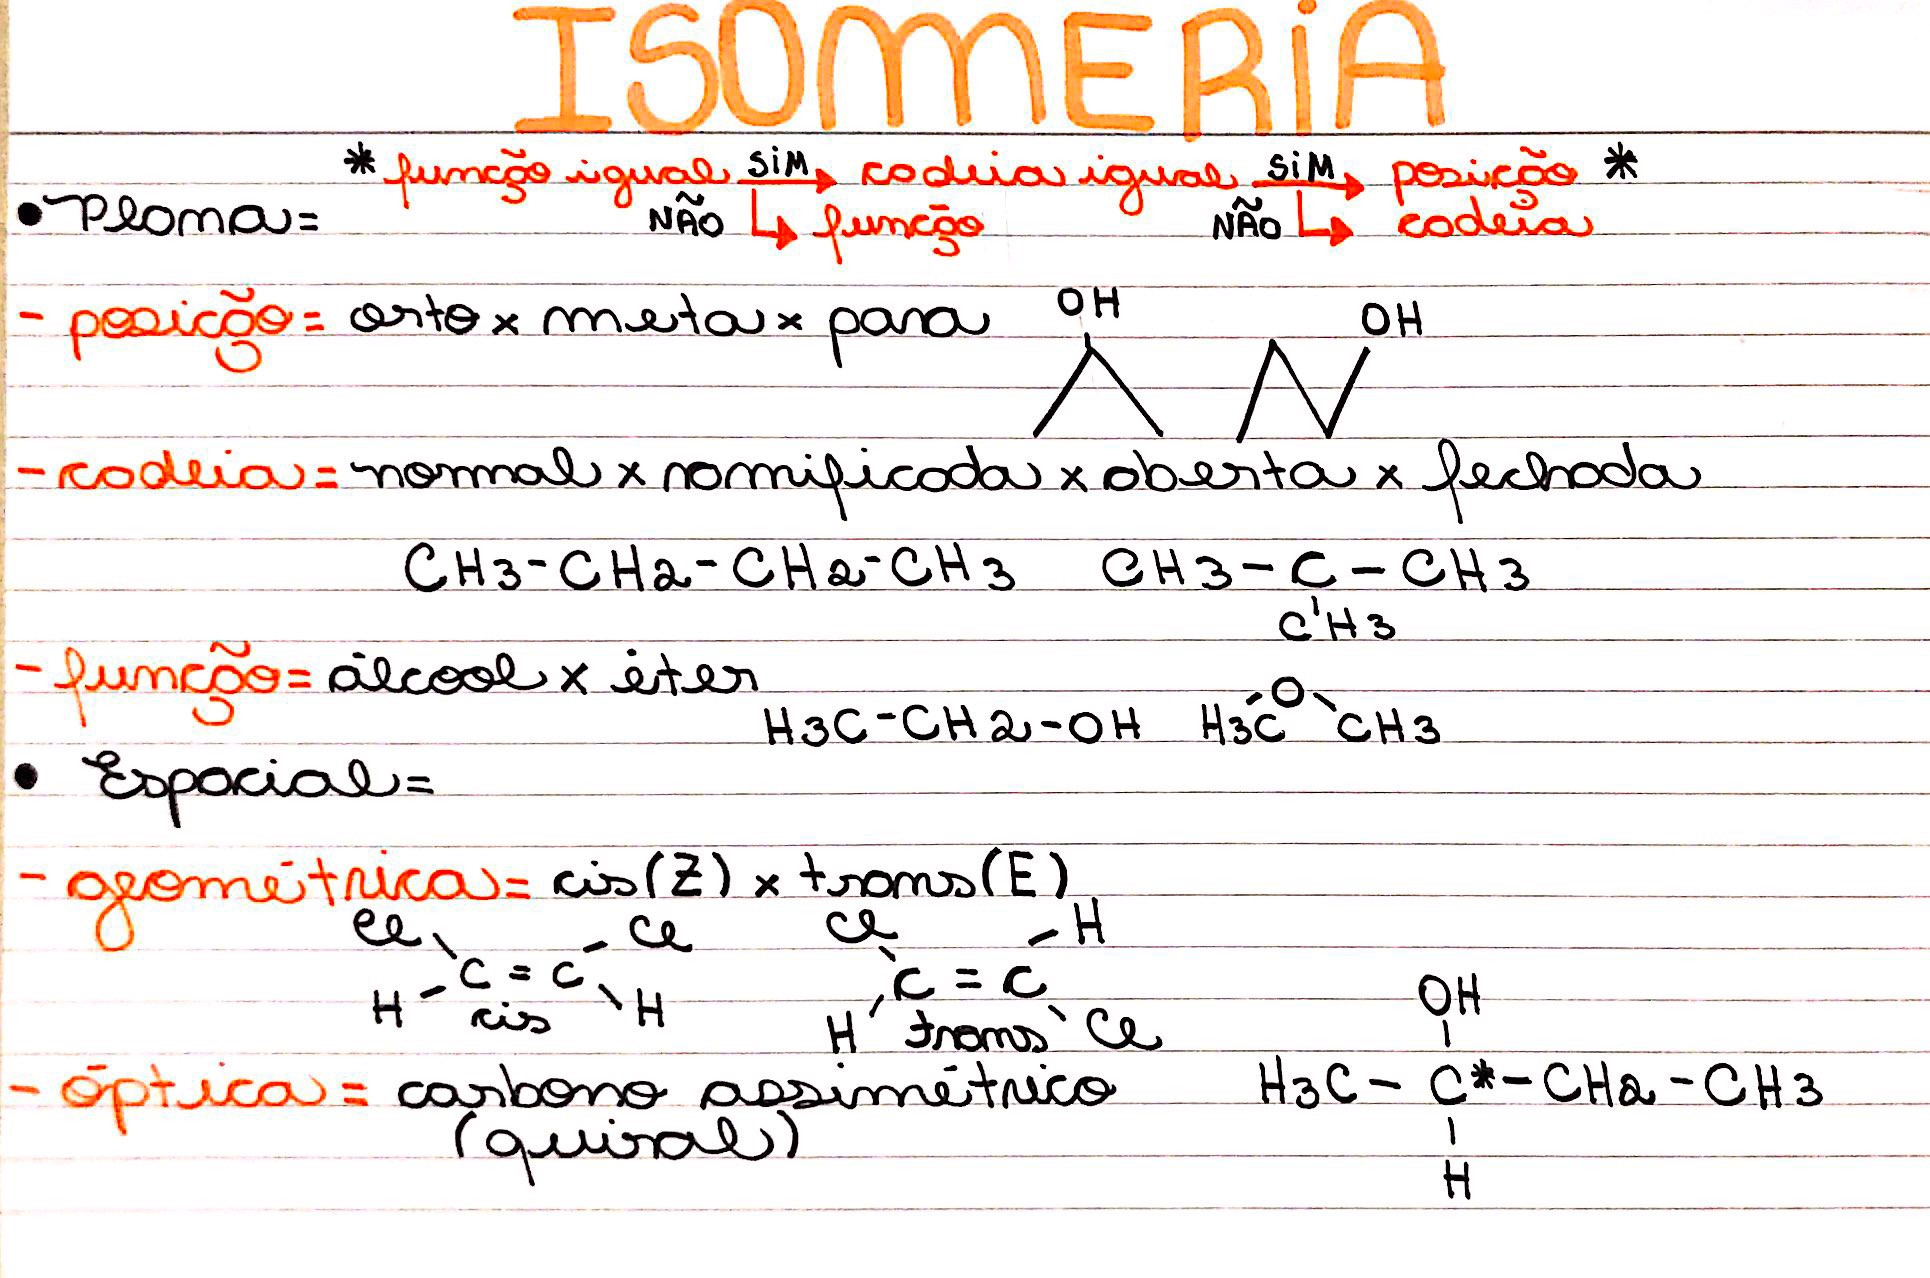 ISOMERIA
* função igual SIM cadeia igual SIM posição *
• Plana= NÃO função NÃO cadeia
- posição= orto x meta x para OH OH
- cadeia= normal x ramificada x aberta x fechada
CH3-CH2-CH2-CH3 CH3-C-CH3
CH3
- função= álcool x éter
H3C-CH2-OH H3C O CH3
• Espacial=
- geométrica= cis(Z) x trans(E)
Cl Cl Cl H
C=C C=C
H cis H H trans Cl
OH
- óptica= carbono assimétrico H3C-C*-CH2-CH3
(quiral)
H